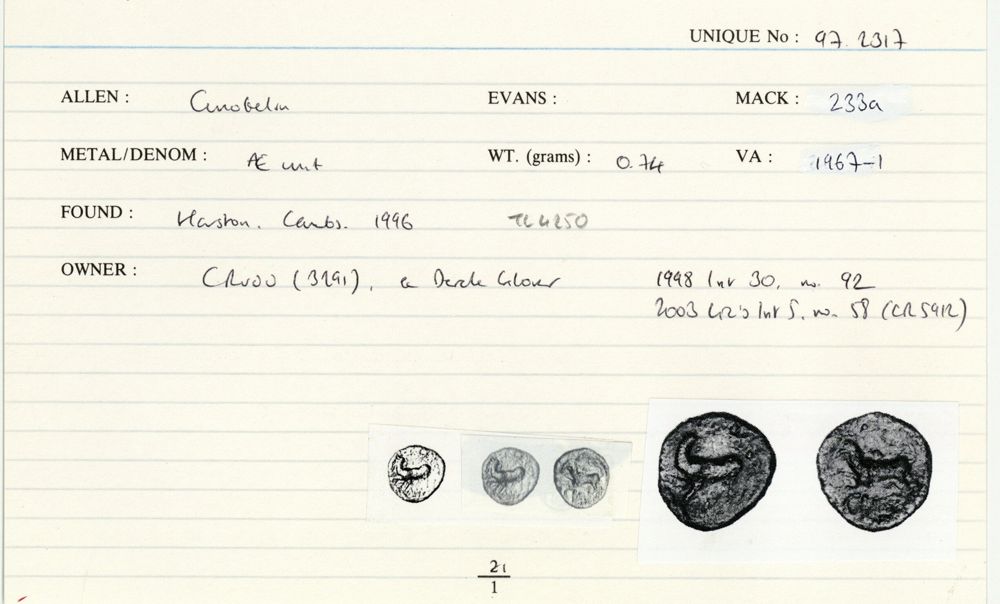 UNIQUE No : 97. 2317
ALLEN : Cunobelin EVANS : MACK : 233a
METAL/DENOM : Æ unit WT. (grams) : 0.74 VA : 1967-1
FOUND : Harston, Cambs. 1996 TL 4250
OWNER : (3291), Derek Glover 1998 Inv 30, no. 92
2003 Inv 5, no. 58 (CR 592)
21
1